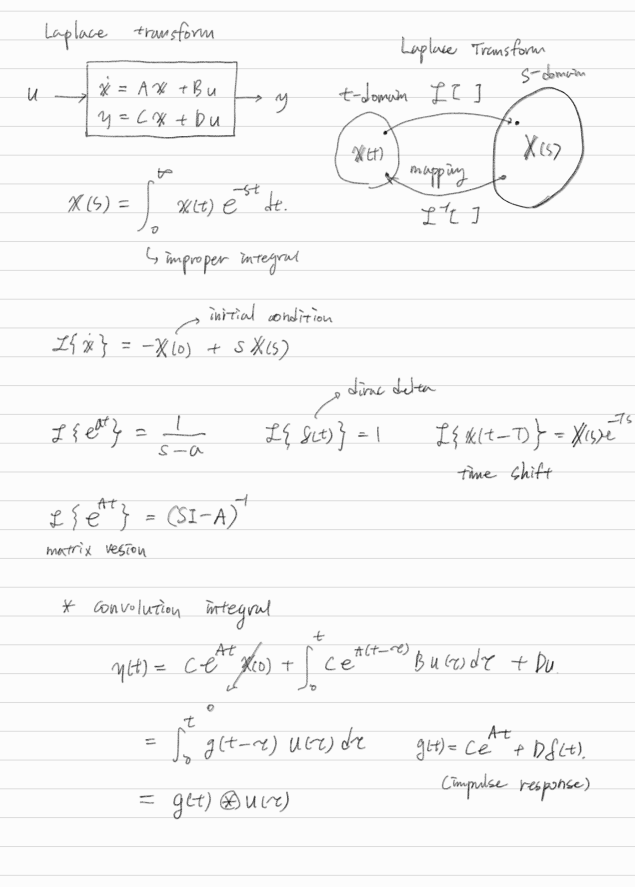 Laplace transform
u → ẋ = Ax + Bu → y
y = Cx + Du
Laplace Transform
t-domain ℒ[ ] s-domain
x(t) X(s)
mapping
ℒ⁻¹[ ]
X(s) = ∫₀^∞ x(t) e^{-st} dt.
↳ improper integral
→ initial condition
ℒ{ẋ} = -x(0) + sX(s)
→ dirac delta
ℒ{e^{at}} = 1/(s-a) ℒ{δ(t)} = 1 ℒ{x(t-T)} = X(s)e^{-Ts}
time shift
ℒ{e^{At}} = (SI-A)^{-1}
matrix vesion
* convolution integral
y(t) = Ce^{At} x(0) + ∫₀^t Ce^{A(t-τ)} Bu(τ)dτ + Du
0
= ∫₀^t g(t-τ) u(τ) dτ g(t) = Ce^{At} + Dδ(t).
(impulse response)
= g(t) ⊛ u(τ)